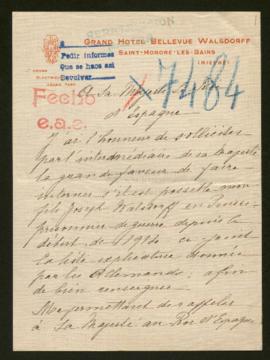 GRAND HOTEL BELLEVUE WALSDORFF
SAINT-HONORÉ-LES-BAINS
(NIÈVRE)
Pedir informes
Que se haga así
Devolver
7484
Fecho
e.a.e.
A Sa Majesté le Roi
d'Espagne
J'ai l'honneur de solliciter
par l'intermédiaire de sa majesté
la grande faveur de faire
interner s'il est possible mon
fils Joseph Walsdorff en Suisse
prisonnier de guerre depuis le
début de 1914 ci joint
la liste explicative donnée
par les Allemands; afin
de bien renseigner
Me permettant de rappeler
à Sa Majesté au Roi d'Espagne